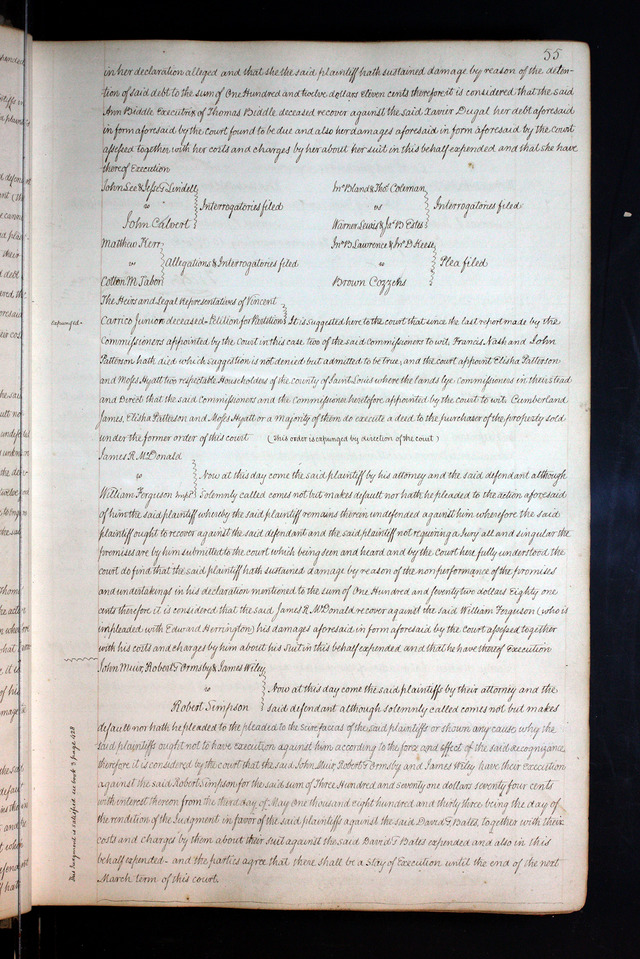 55
in her declaration alleged and that she the said plaintiff hath sustained damage by reason of the deten-
tion of said debt to the sum of One Hundred and twelve dollars Eleven cents therefore it is considered that the said
Ann Biddle Executrix of Thomas Biddle deceased recover against the said Xavier Dugal her debt aforesaid
in form aforesaid by the court found to be due and also her damages aforesaid in form aforesaid by the court
assessed together with her costs and charges by her about her suit in this behalf expended and that she have
thereof Execution
John Lee & Jesse G Lindell
vs Interrogatories filed
John Calvert
Jno Bland & Thos Coleman
vs Interrogatories filed
Warner Lewis & Jas B Estes
Matthew Kerr
vs Allegations & Interrogatories filed
Cotton M Tabor
Jno B Lawrence & Wm D Keese
vs Plea filed
Brown Cozzens
The Heirs and Legal Representatives of Vincent
Expunged-
Carrico Junior deceased - Petition for Partition It is suggested here to the court that since the last report made by the
Commissioners appointed by the Court in this case two of the said Commissioners to wit, Francis Nash and John
Patterson hath died which suggestion is not denied but admitted to be true, and the court appoint Elisha Patterson
and Moses Hyatt two respectable Householders of the county of Saint Louis where the lands lye Commissioners in their stead
and Direct that the said Commissioners and the Commissioner heretofore appointed by the court to wit, Cumberland
James, Elisha Patterson and Moses Hyatt or a majority of them do execute a deed to the purchaser of the property sold
under the former order of this court (this order is expunged by direction of the court)
James R. McDonald
vs Now at this day come the said plaintiff by his attorney and the said defendant although
William Ferguson Impd Solemnly called comes not but makes default nor hath he pleaded to the action aforesaid
of him the said plaintiff whereby the said plaintiff remains therein undefended against him wherefore the said
plaintiff ought to recover against the said defendant and the said plaintiff not requiring a Jury all and singular the
premises are by him submitted to the court which being seen and heard and by the Court here fully understood the
court do find that the said plaintiff hath sustained damage by reason of the nonperformance of the promises
and undertakings in his declaration mentioned to the sum of One Hundred and Seventy two dollars Eighty one
cents therefore it is considered that the said James R McDonald recover against the said William Ferguson (who is
impleaded with Edward Herrington) his damages aforesaid in form aforesaid by the court assessed together
with his costs and charges by him about his Suit in this behalf expended and that he have thereof Execution
John Muir, Robert T Ormsby & James Wiley
vs Now at this day come the said plaintiffs by their attorney and the
Robert Simpson said defendant although solemnly called comes not but makes
default nor hath he pleaded to the pleaded to the scire facias of the said plaintiffs or shown any cause why the
said plaintiffs ought not to have execution against him according to the force and effect of the said recognizance,
therefore it is considered by the court that the said John Muir, Robert T Ormsby and James Wiley have their Execution
against the said Robert Simpson for the said sum of Three Hundred and Seventy one dollars seventy four cents
with interest thereon from the third day of May one thousand eight hundred and thirty three being the day of
the rendition of the Judgment in favor of the said plaintiffs against the said David T Bates, together with their
costs and charges by them about their suit against the said David T Bates expended and also in this
behalf expended - and the parties agree that there shall be a Stay of Execution until the end of the next
March term of this court.
This Judgment is satisfied see book 7 page 428